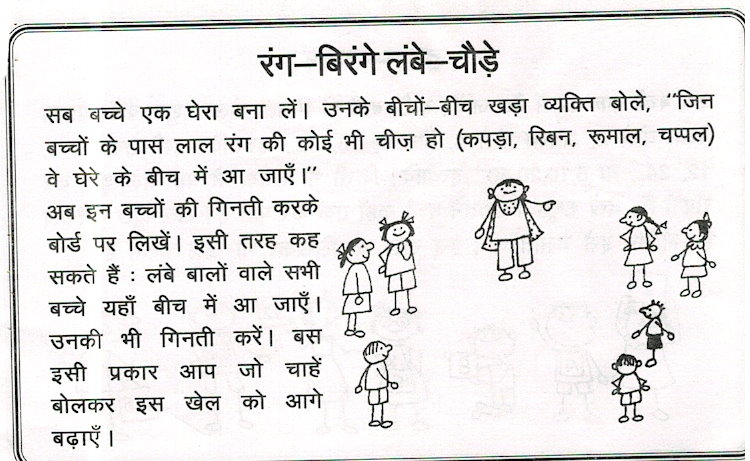 रंग–बिरंगे लंबे–चौड़े
सब बच्चे एक घेरा बना लें। उनके बीचों–बीच खड़ा व्यक्ति बोले, “जिन
बच्चों के पास लाल रंग की कोई भी चीज़ हो (कपड़ा, रिबन, रूमाल, चप्पल)
वे घेरे के बीच में आ जाएँ।”
अब इन बच्चों की गिनती करके
बोर्ड पर लिखें। इसी तरह कह
सकते हैं : लंबे बालों वाले सभी
बच्चे यहाँ बीच में आ जाएँ।
उनकी भी गिनती करें। बस
इसी प्रकार आप जो चाहें
बोलकर इस खेल को आगे
बढ़ाएँ।